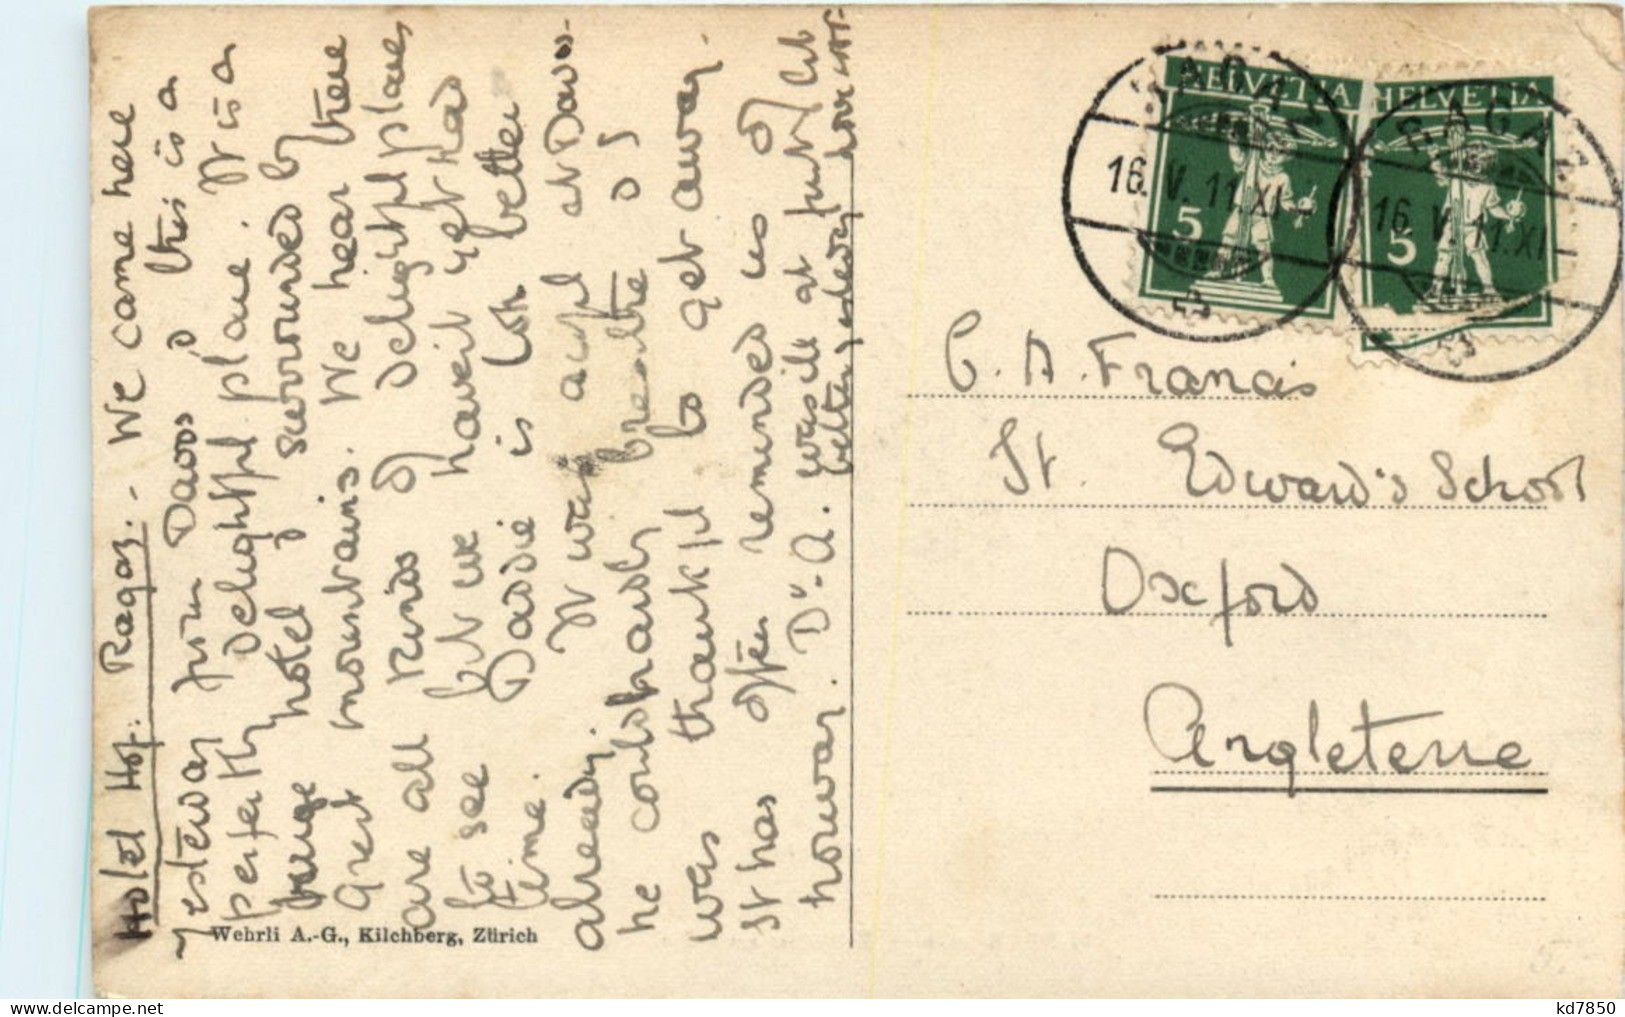 Hotel Hof: Ragaz. - We came here
yesterday from Davos & this is a
perfectly delightful place. It is a
huge hotel & surrounded by
great mountains. We hear there
are all kinds of delightful places
to see but we haven't yet had
time. Daddie is looking better
already. It was awful at Davos.
he could hardly breathe & I
was thankful to get away.
It has often reminded us of
Norway. Dr. A. was ill at first but
better
Wehrli A.-G., Kilchberg, Zürich
HELVETIA
5
HELVETIA
5
RAGAZ
16. V. 11. XI
RAGAZ
16. V. 11. XI
C. A. Francis
St. Edward's School
Oxford
Angleterre
5.-
kd7850